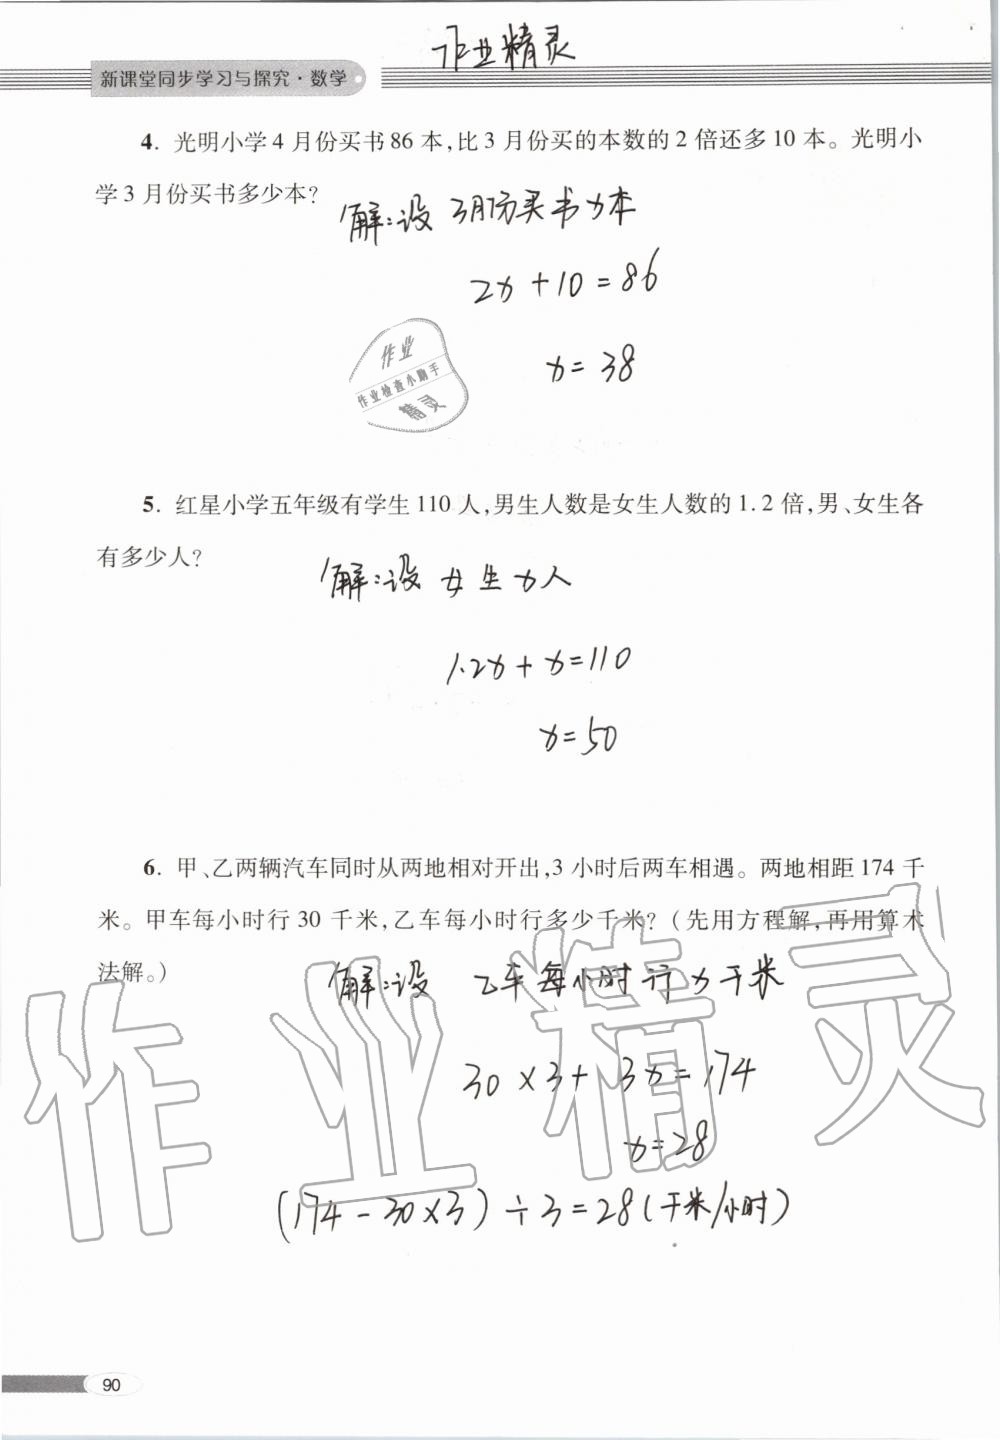 作业精灵
新课堂同步学习与探究·数学
4. 光明小学4月份买书86本,比3月份买的本数的2倍还多10本。光明小
学3月份买书多少本?
解:设 3月份买书x本
2x+10=86
x=38
作业
作业检查小助手
精灵
5. 红星小学五年级有学生110人,男生人数是女生人数的1.2倍,男、女生各
有多少人?
解:设 女生x人
1.2x+x=110
x=50
6. 甲、乙两辆汽车同时从两地相对开出,3小时后两车相遇。两地相距174千
米。甲车每小时行30千米,乙车每小时行多少千米?(先用方程解,再用算术
法解。)
解:设 乙车每小时行x千米
30×3+3x=174
x=28
(174-30×3)÷3=28(千米/小时)
作业精灵
90